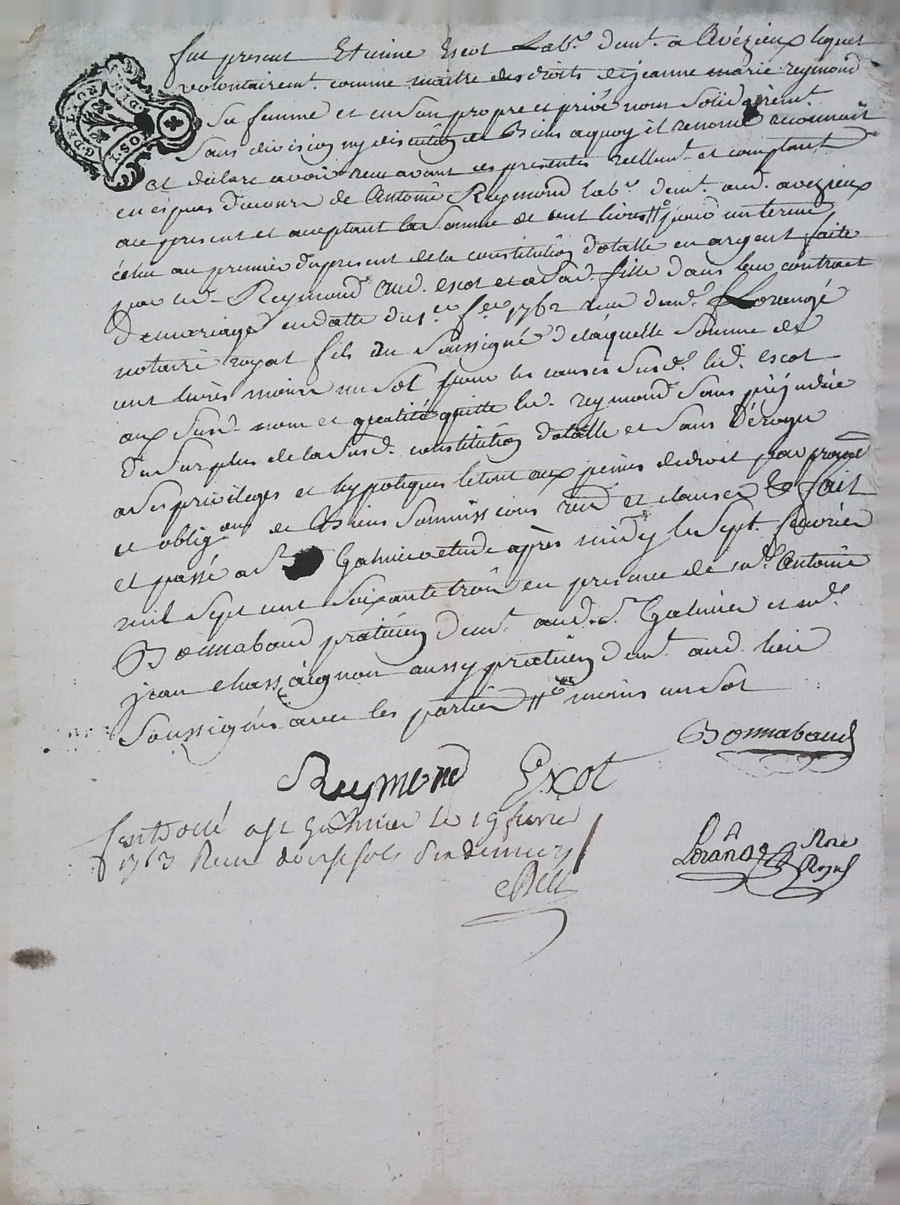 fut present Etienne Escot Lab.r dem.t a Avézieux lequel
volontairem.t comme maitre des droits de jeanne marie reymond
Sa femme et en son propre et privé nom Solidairem.t
Sans division ny discution de Biens a quoy il renonce reconnait
et déclare avoir reçu avant ces presentes réellem.t et comptant
en especes du cours de Antoine Reymond lab.r dem.t aud. avezieux
acy present et aceptant la Somme de cent livres # pour un terme
échu au premier du present de la constitution dotalle en argent faite
par led. Reymond aud. escot et a Sad. fille dans leur contract
De mariage en datte du 1.er fev.er 1762 reçu dem.t Lorangé
notaire royal fils du Soussigné de laquelle Somme de
cent livres moins un Sol pour les causes Susd. led. escot
aux Susd. nom et qualité quitte led. reymond Sans préjudice
du Surplus de la Susd. constitution dotalle et Sans Déroger
a Ses privileges et hypoteques le tout aux peines de droit par promesse
et oblig.ons de Biens Soumissions ren.ons et clauses fait
et passé a S.t Galmier etude après midy le Sept fevrier
mil Sept cent Soixante trois en presence de m.e Antoine
Bonnabaud praticien dem.t aud. S.t Galmier et m.e
jean Chassaignon aussy praticien dem.t aud. lieu
Soussignés avec les parties # moins un Sol
Bonnabaud
Reymond Exot
Controllé a St Galmier le 19 fevrier
1763 Reçu douze sols Six deniers
Lorangé No.re Royal